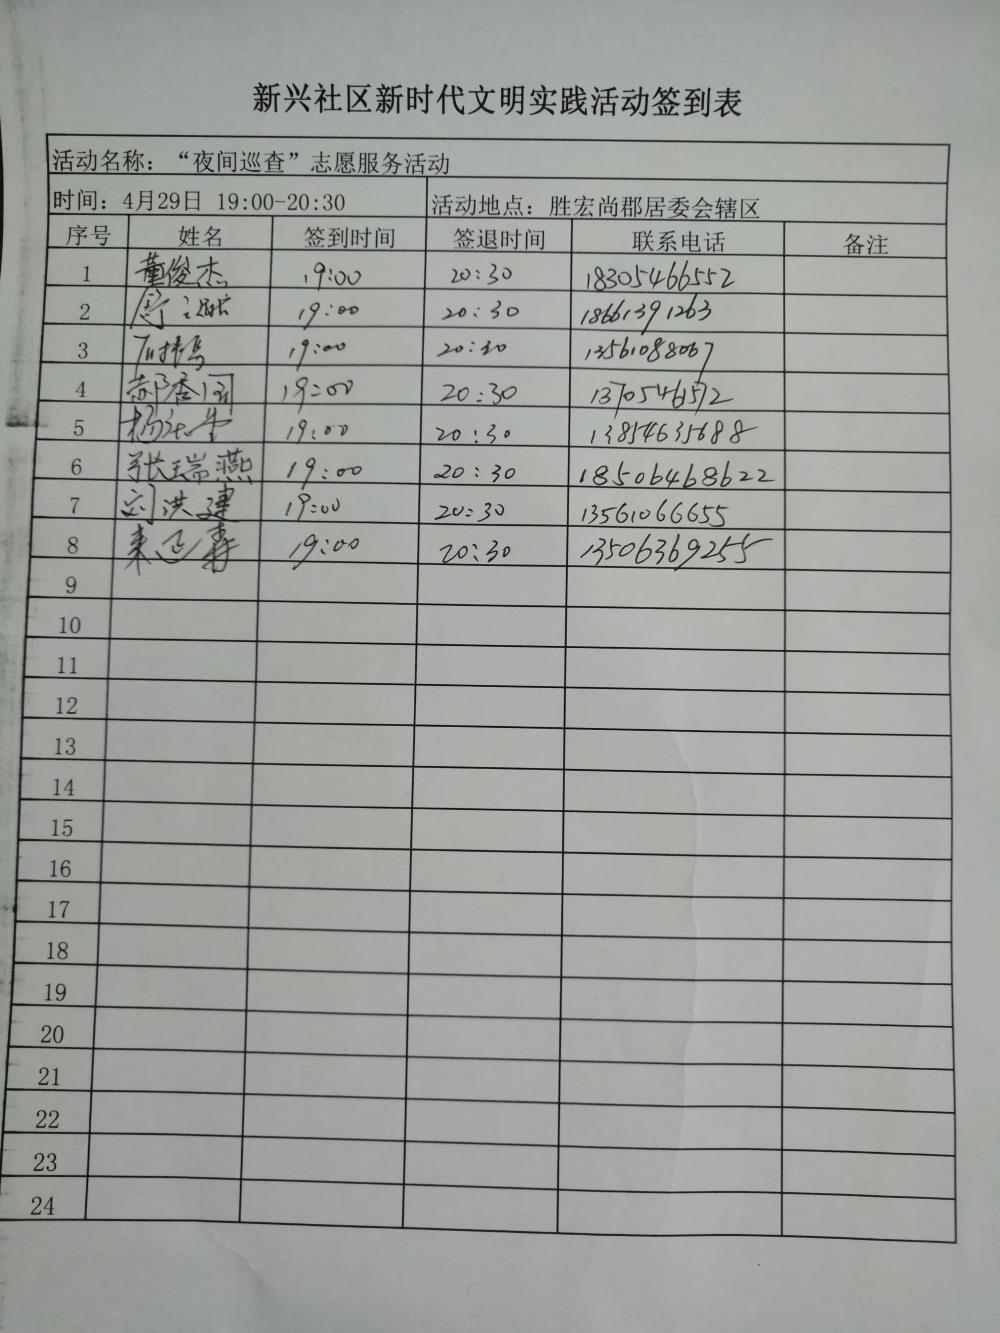 新兴社区新时代文明实践活动签到表
活动名称：“夜间巡查”志愿服务活动
时间：4月29日 19:00-20:30 活动地点：胜宏尚郡居委会辖区
序号 姓名 签到时间 签退时间 联系电话 备注
1 董俊杰 19:00 20:30 18305466552
2 19:00 20:30 18661391263
3 19:00 20:30 13561088067
4 郝秀阁 19:00 20:30 1370546572
5 19:00 20:30 13854635688
6 张瑞燕 19:00 20:30 18506468622
7 刘洪建 19:00 20:30 13561066655
8 来延寿 19:00 20:30 13506369255
9
10
11
12
13
14
15
16
17
18
19
20
21
22
23
24